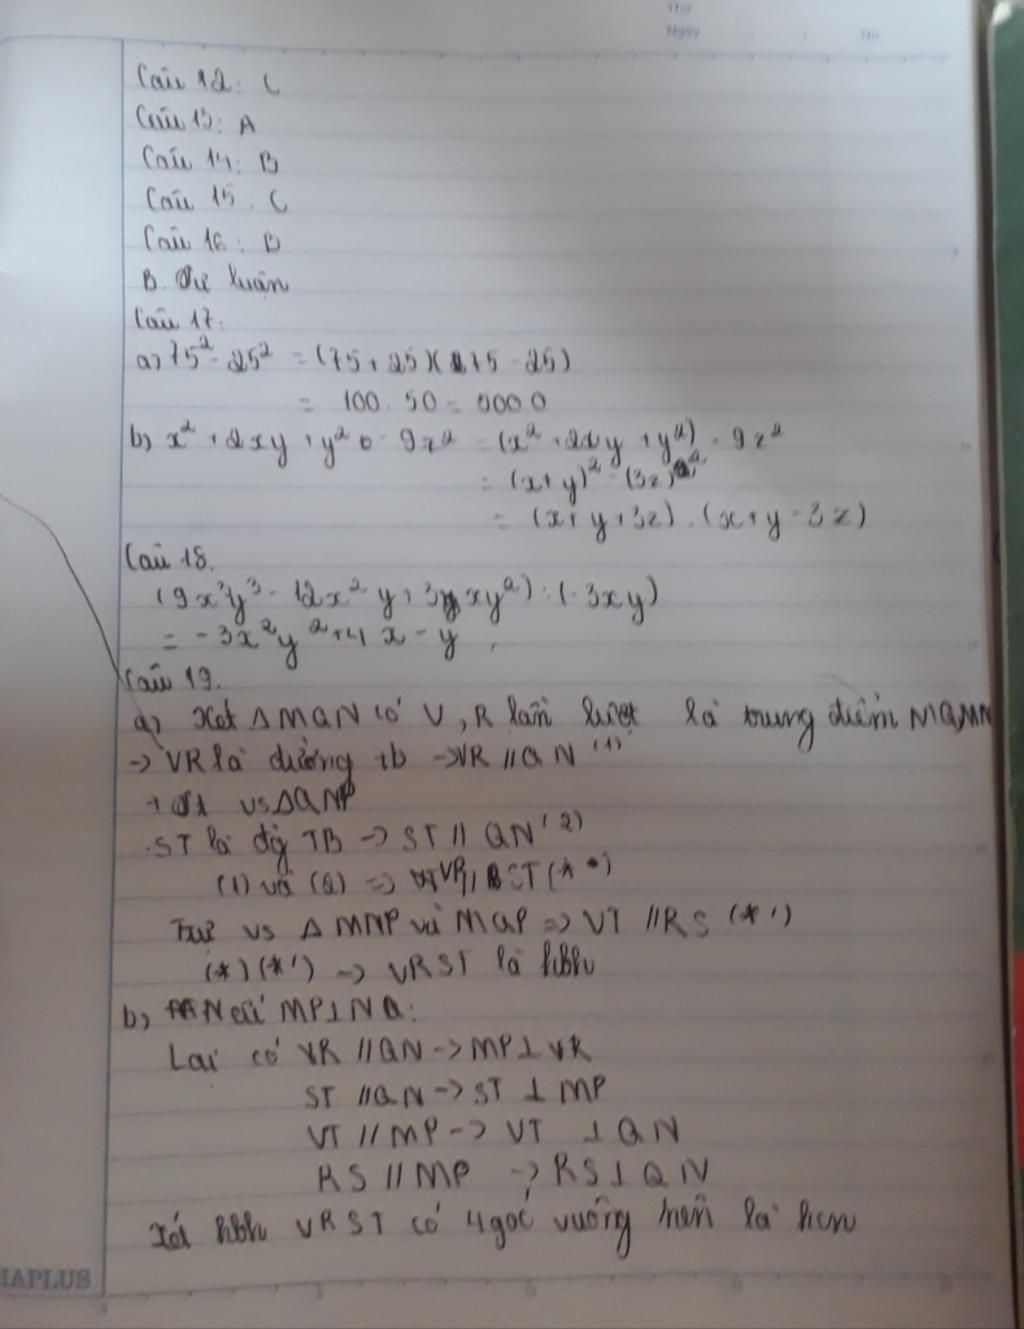 Thứ
Ngày No
Câu 12: C
Câu 13: A
Câu 14: B
Câu 15: C
Câu 16: B
B. Tự luận
Câu 17:
a) 75² - 25² = (75 + 25)(75 - 25)
= 100 . 50 = 5000
b) x² + 2xy + y² - 9z² = (x² + 2xy + y²) - 9z²
= (x + y)² - (3z)²
= (x + y + 3z) . (x + y - 3z)
Câu 18.
(9x³y³ - 12x²y + 3xy²) : (-3xy)
= -3x²y² + 4x - y
Câu 19.
a) Xét Δ MQN có V, R lần lượt là trung điểm MQ, MN
-> VR là đường tb -> VR // QN (1)
+ vs Δ QNP
ST là đg TB -> ST // QN (2)
(1) và (2) => VR // ST (*)
vs Δ MNP và MQP => VT // RS (*')
(*) (*') -> VRST là hbh
b) Nếu MP ⊥ NQ:
Lại có VR // QN -> MP ⊥ VR
ST // QN -> ST ⊥ MP
VT // MP -> VT ⊥ QN
RS // MP -> RS ⊥ QN
Xét hbh VRST có 4 góc vuông nên là hcn
HAPLUS